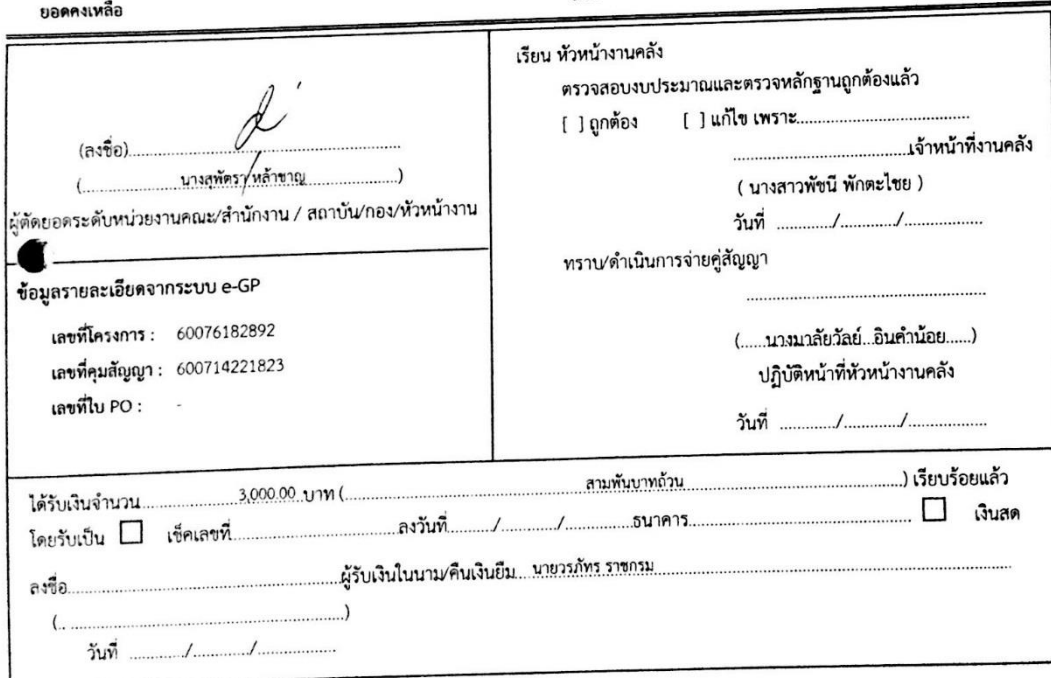 ยอดคงเหลือ
(ลงชื่อ)............................................................
(.......................นางสุพัตรา หล้าชาญ.......................)
ผู้ตัดยอดระดับหน่วยงานคณะ/สำนักงาน / สถาบัน/กอง/หัวหน้างาน
ข้อมูลรายละเอียดจากระบบ e-GP
เลขที่โครงการ : 60076182892
เลขที่คุมสัญญา : 600714221823
เลขที่ใบ PO : -
เรียน หัวหน้างานคลัง
ตรวจสอบงบประมาณและตรวจหลักฐานถูกต้องแล้ว
[ ] ถูกต้อง [ ] แก้ไข เพราะ.......................................
........................................เจ้าหน้าที่งานคลัง
( นางสาวพัชนี พักตะไชย )
วันที่ ............./............./..................
ทราบ/ดำเนินการจ่ายคู่สัญญา
......................................................
(......นางมาลัยวัลย์...อินคำน้อย......)
ปฏิบัติหน้าที่หัวหน้างานคลัง
วันที่ ............./............./..................
ได้รับเงินจำนวน..................3,000.00 บาท (..................สามพันบาทถ้วน..................) เรียบร้อยแล้ว
โดยรับเป็น ☐ เช็คเลขที่..................ลงวันที่........../............./.............ธนาคาร.................. ☐ เงินสด
ลงชื่อ............................................................ผู้รับเงินในนาม/คืนเงินยืม....นายวรภัทร ราชกรม..................
(............................................................)
วันที่ ............./............./..................